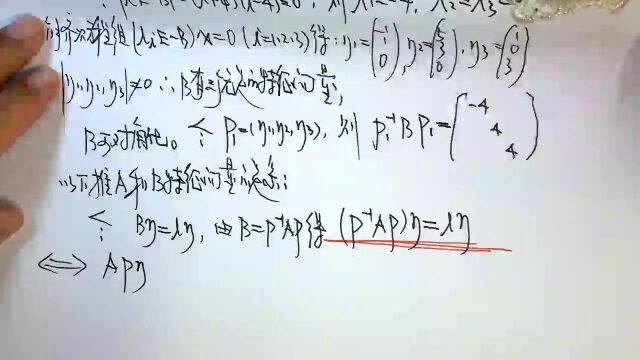 |λE-B|=(λ+4)(λ-4)²=0, 则 λ₁=-4, λ₂=λ₃=
解齐次方程组(λᵢE-B)x=0 (i=1,2,3)得: η₁=(-1 1 0), η₂=( 3 0), η₃=(1 0 3)
|η₁,η₂,η₃|≠0 ∴B有三个无关特征向量,
B可对角化。令: P₁=(η₁,η₂,η₃), 则 P₁⁻¹BP₁=(-4 4 4)
以下推A和B特征向量的关系:
令: Bη=λη, 由B=P⁻¹AP得 (P⁻¹AP)η=λη
⟺ APη